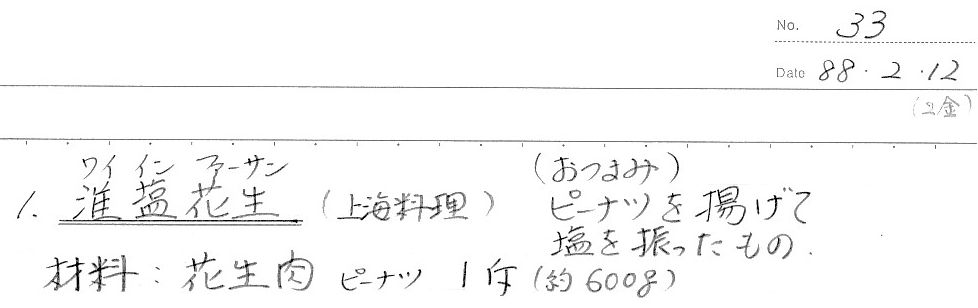 No. 33
Date 88・2・12
(2金)
ワイ イン ファーサン
1. 淮塩花生 (上海料理) (おつまみ)
ピーナツを揚げて
塩を振ったもの.
材料:花生肉 ピーナツ 1斤 (約600g)